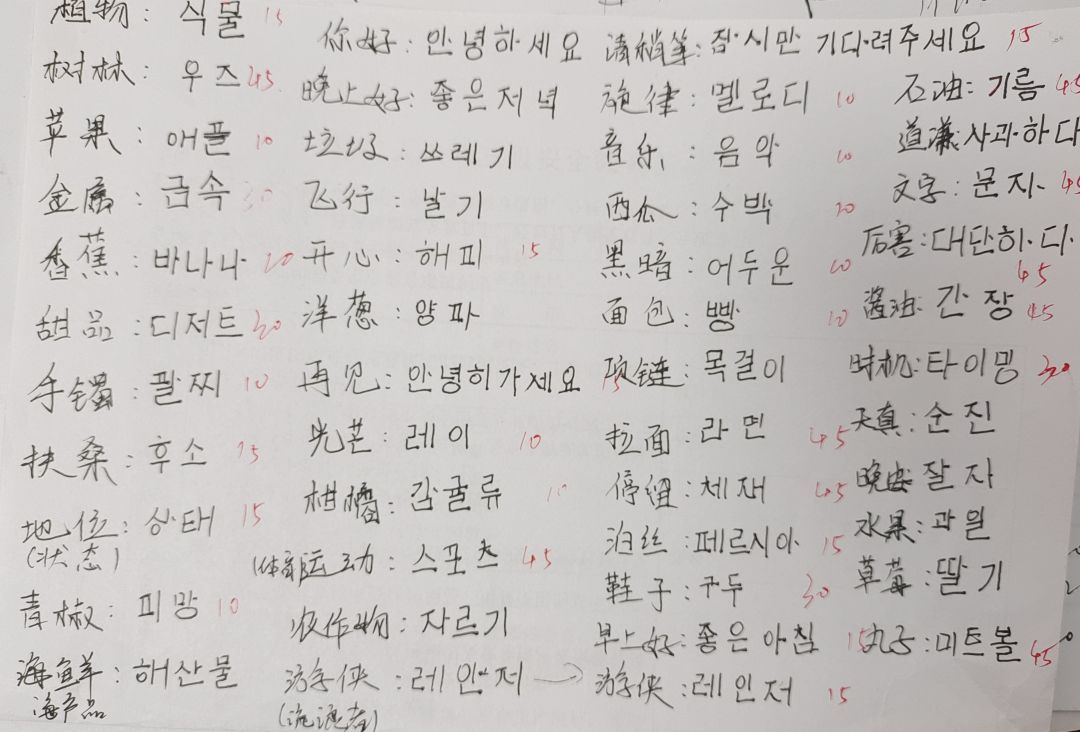 植物: 식물 15
树林: 우즈 45
苹果: 애플 10
金属: 금속 30
香蕉: 바나나 20
甜品: 디저트 30
手镯: 팔찌 10
扶桑: 후소 15
地位: 상태 15
(状态)
青椒: 피망 10
海鲜: 해산물
海产品
你好: 안녕하세요
晚上好: 좋은저녁
垃圾: 쓰레기
飞行: 날기
开心: 해피 15
洋葱: 양파
再见: 안녕히가세요 15
光芒: 레이 10
柑橘: 감귤류 10
(体育)运动: 스포츠 45
收作物: 자르기
游侠: 레인저 →
(流浪者)
请稍等: 잠시만 기다려주세요 15
旋律: 멜로디 10
音乐: 음악 10
西瓜: 수박 20
黑暗: 어두운 20
面包: 빵 10
项链: 목걸이
拉面: 라면 45
停留: 체재 45
泊丝: 페르시아 15
鞋子: 구두 30
早上好: 좋은아침 15
游侠: 레인저 15
石油: 기름 45
道谦: 사과하다
文字: 문자 45
厉害: 대단히다
45
酱油: 간장 45
时机: 타이밍 30
天真: 순진
晚安: 잘자
水果: 과일
草莓: 딸기
丸子: 미트볼 45